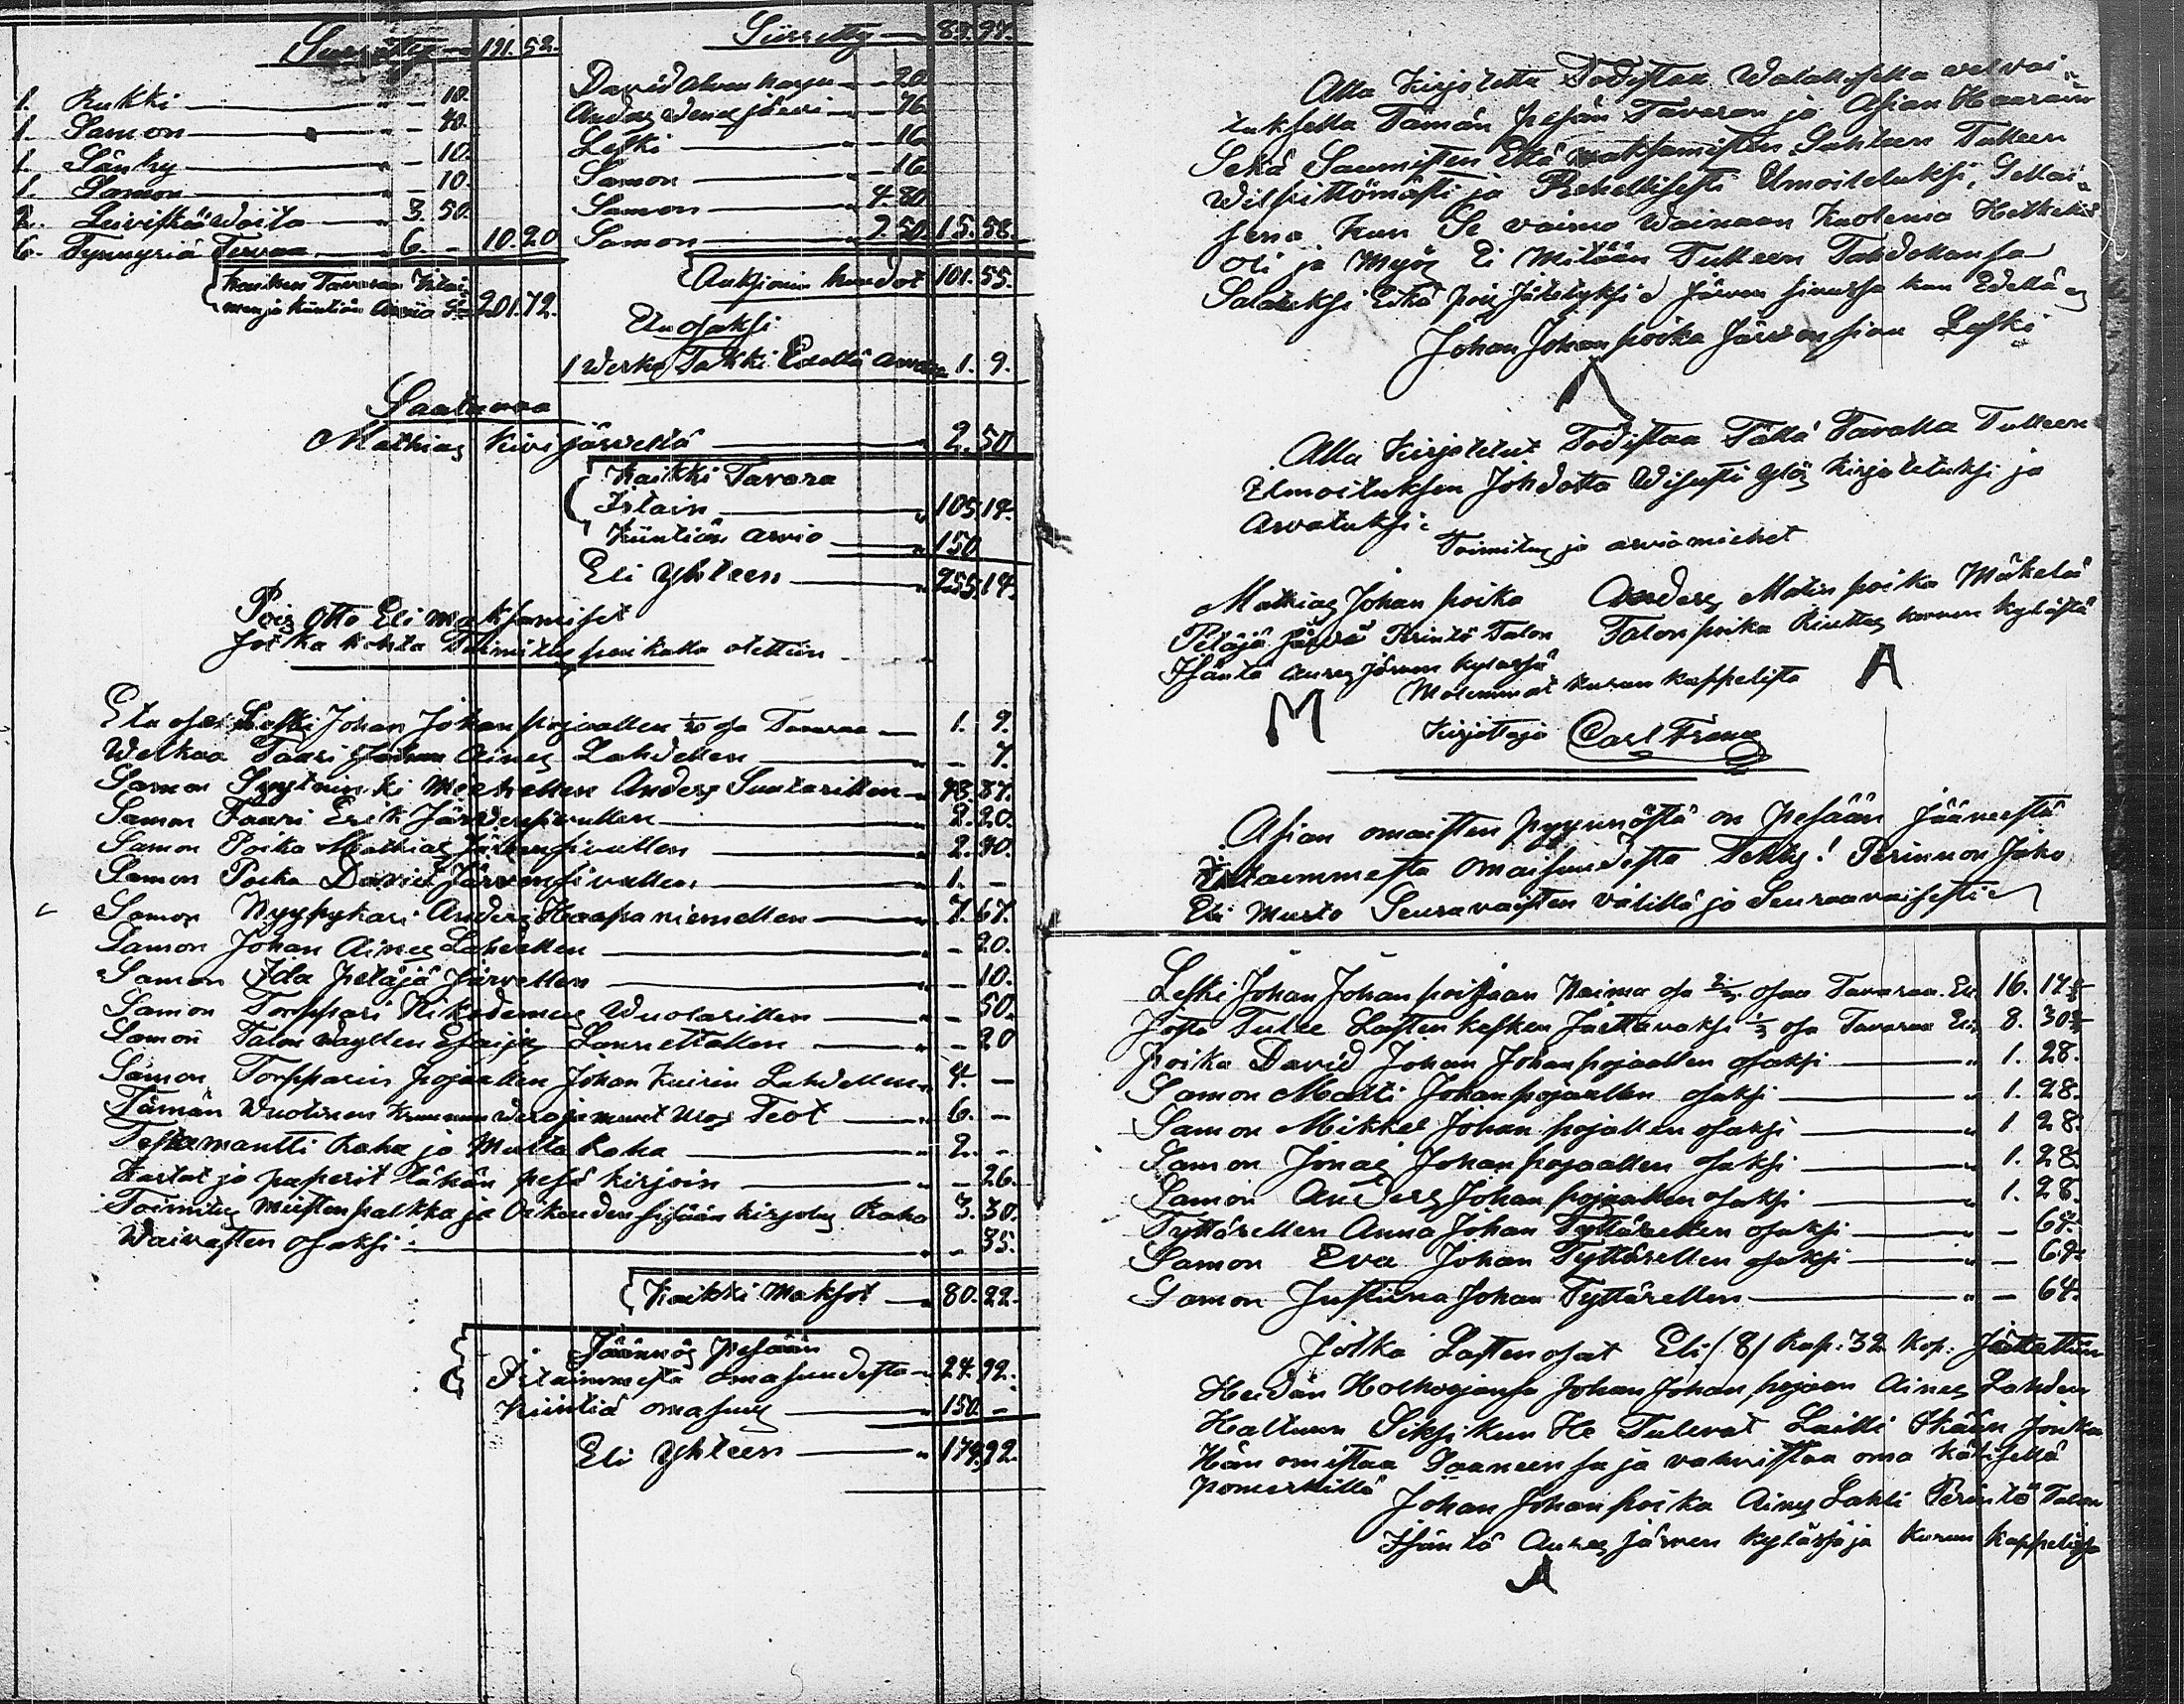 Siirretty 191. 52.
1. Rukki " – 10.
1. Samon " – 40.
1. Sänky " – 10.
1. Samon " – 10.
2. Leiviskää Woita " 3. 50.
6. Tynnyriä Tervaa " 6. – 10. 20
Kaiken Tavaran Irtai-
men ja kiintiän Arvio S:a 201. 72.
Siirretty 89. 97.
David Ahvenharju – 20.
Anders 16
Leski – 16
Samon – 16
Samon " 4. 80
Samon " 2 50. 15. 58.
Aukjonin huudot 101. 55.
Etu osaksi
1 Werka Takki Edellä arvattu 1. 9.
Saatavaa
Mathias Kivijärveltä " 2. 50
Kaikki Tavara
Irtain " 105. 14.
Kiintiän arvio " 150
Eli yhteen " 255. 14.
Pois Otto Eli maksamiset
Jotka kohta Toimitus paikalla otettiin
Etu osa Leski Johan Johanpojaallen 1/20 osa Tavaraa 1. 9.
Welkaa Faari Johan Aines Lahdellen " – 7.
Samon Snytninki Miehellen Anders Suutarillen " 43. 87.
Samon Faari Erik Järvensivullen 2. 20.
Samon Poika Mathias Järvensivullen 2. 40.
Samon Poika David Järvensivullen 1. –
Samon Nyypykari Anders Haapaniemellen 7. 67.
Samon Johan Aines Lahdellen – 20.
Samon Ida Petäjä Järvellen – 10.
Samon Torppari Nikodemus Wuolarillen " – 50.
Samon Talon Esaijas Laurettallen " – 20
Samon Torpparin pojaallen Johan Kuirin Lahdellen " 4. –
Tämän Wuotinen Kruunun Vero ja muut Ulos Teot " 6. –
Testamantti Raha ja Multa Raha " 2. –
Kartat ja paperit tähän pesä kirjoin " – 26.
Toimitus miesten palkka ja Oikeuden sisään kirjotus Raha 3. 30.
Waivasten osaksi " – 35.
Kaikki Maksot " 80. 22.
Jäännös Pesään
Irtaimmesta omasuudesta " 24. 92.
Kiintiä omasuus " 150 –
Eli yhteen " 174. 92.
Alla Kirjotettu Todistaa Walallisella velvoi-
tuksella Tämän pesän Tavaran ja Asian Haarain
Sekä Saamisten Että maksamisten Suhteen Tulleen
Wilpittömästi ja Rehellisesti Ilmoitetuksi, Sellai-
sena kun Se vaimo Wainaan Kuolema Hetkellä
oli ja Myös Ei Mitään Tulleen Tahdollansa
Salatuksi Eikä pois Jätetyksi Järven sivussa kun Edellä
Johan Johanpoika Järvensivu Leski
Alla Kirjotetut Todistaa Tällä Tavalla Tulleen
Ilmoituksen Johdatta Wisusti Ylös Kirjotetuksi ja
Arvatuksi:
Toimitus ja arvio miehet
Mathias Johan poika
Petäjä Järvi Perintö Talon
Isäntä Aures Järven kylässä
Anders Matin poika Mäkelä
Talon poika Riuttas kylästä
Molemmat Kurun kappelista
M A
Kirjottaja Carl Frans
Asian omaisten pyynnöstä on pesään jääneestä
Irtaimmesta Omaisuudesta Tehty! Perinnon Jako
Eli Murto Seuraavaisten välillä ja Seuraavaisesti
Leski Johan Johanpoijaan Naima osa 2/3 osaa Tavaraa Eli 16. 12
Josta Tulee Lasten kesken Jaettavaksi 1/3 osa Tavaraa Eli 8. 30
poika David Johan Johanpojaallen osaksi " 1. 28.
Samon Matti Johanpojaallen osaksi " 1. 28.
Samon Mikkel Johan pojallen osaksi " 1 28.
Samon Jonas Johanpojaallen osaksi " 1. 28.
Samon Anders Johan pojaallen osaksi " 1. 28.
Tyttärellen Anna Johan Tyttärellen osaksi " – 64.
Samon Eva Johan Tyttärellen osaksi " – 64.
Samon Justiina Johan Tyttärellen " – 64.
Jotka Lasten osat Eli (8) Rup: 32 kop: Jätettiin
Heidän Holhoojansa Johan Johan pojaan Aines Lahden
Haltuun Siksi kun He Tulevat Lailli Ikään Jonka
Hän omistaa Saaneensa ja vahvistaa oma Kätisellä
pomerkillä
Johan Johanpoika Aines Lahti Perintö Talon
Isäntä Aures Järven kylässä ja Kurun Kappelissa